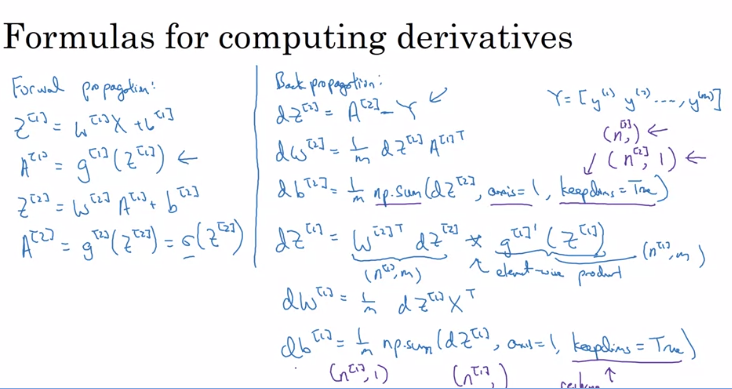 Formulas for computing derivatives
Forward propagation:
Z^[1] = W^[1]X + b^[1]
A^[1] = g^[1](Z^[1]) ←
Z^[2] = W^[2] A^[1] + b^[2]
A^[2] = g^[2](Z^[2]) = σ(Z^[2])
Back propagation:
dZ^[2] = A^[2] - Y ↙
Y = [y^(1) y^(2) ..., y^(m)]
dW^[2] = 1/m dZ^[2] A^[1]T
(n^[2],) ←
(n^[2], 1) ←
db^[2] = 1/m np.sum(dZ^[2], axis=1, keepdims=True)
dZ^[1] = W^[2]T dZ^[2] * g^[1]'(Z^[1])
(n^[1], m) ↑ element-wise product (n^[1], m)
dW^[1] = 1/m dZ^[1] X^T
db^[1] = 1/m np.sum(dZ^[1], axis=1, keepdims=True)
(n^[1], 1) (n^[1],) ↑